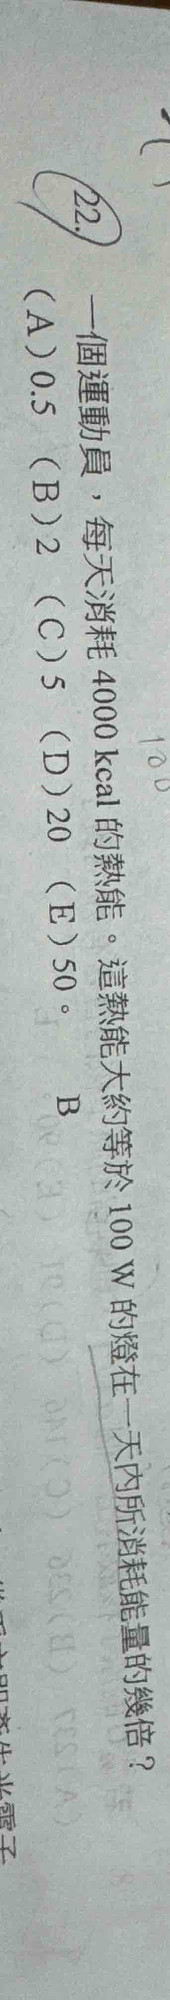 100
22. 一個運動員，每天消耗 4000 kcal 的熱能。這熱能大約等於 100 W 的燈在一天內所消耗能量的幾倍？
(A) 0.5 (B) 2 (C) 5 (D) 20 (E) 50。
B